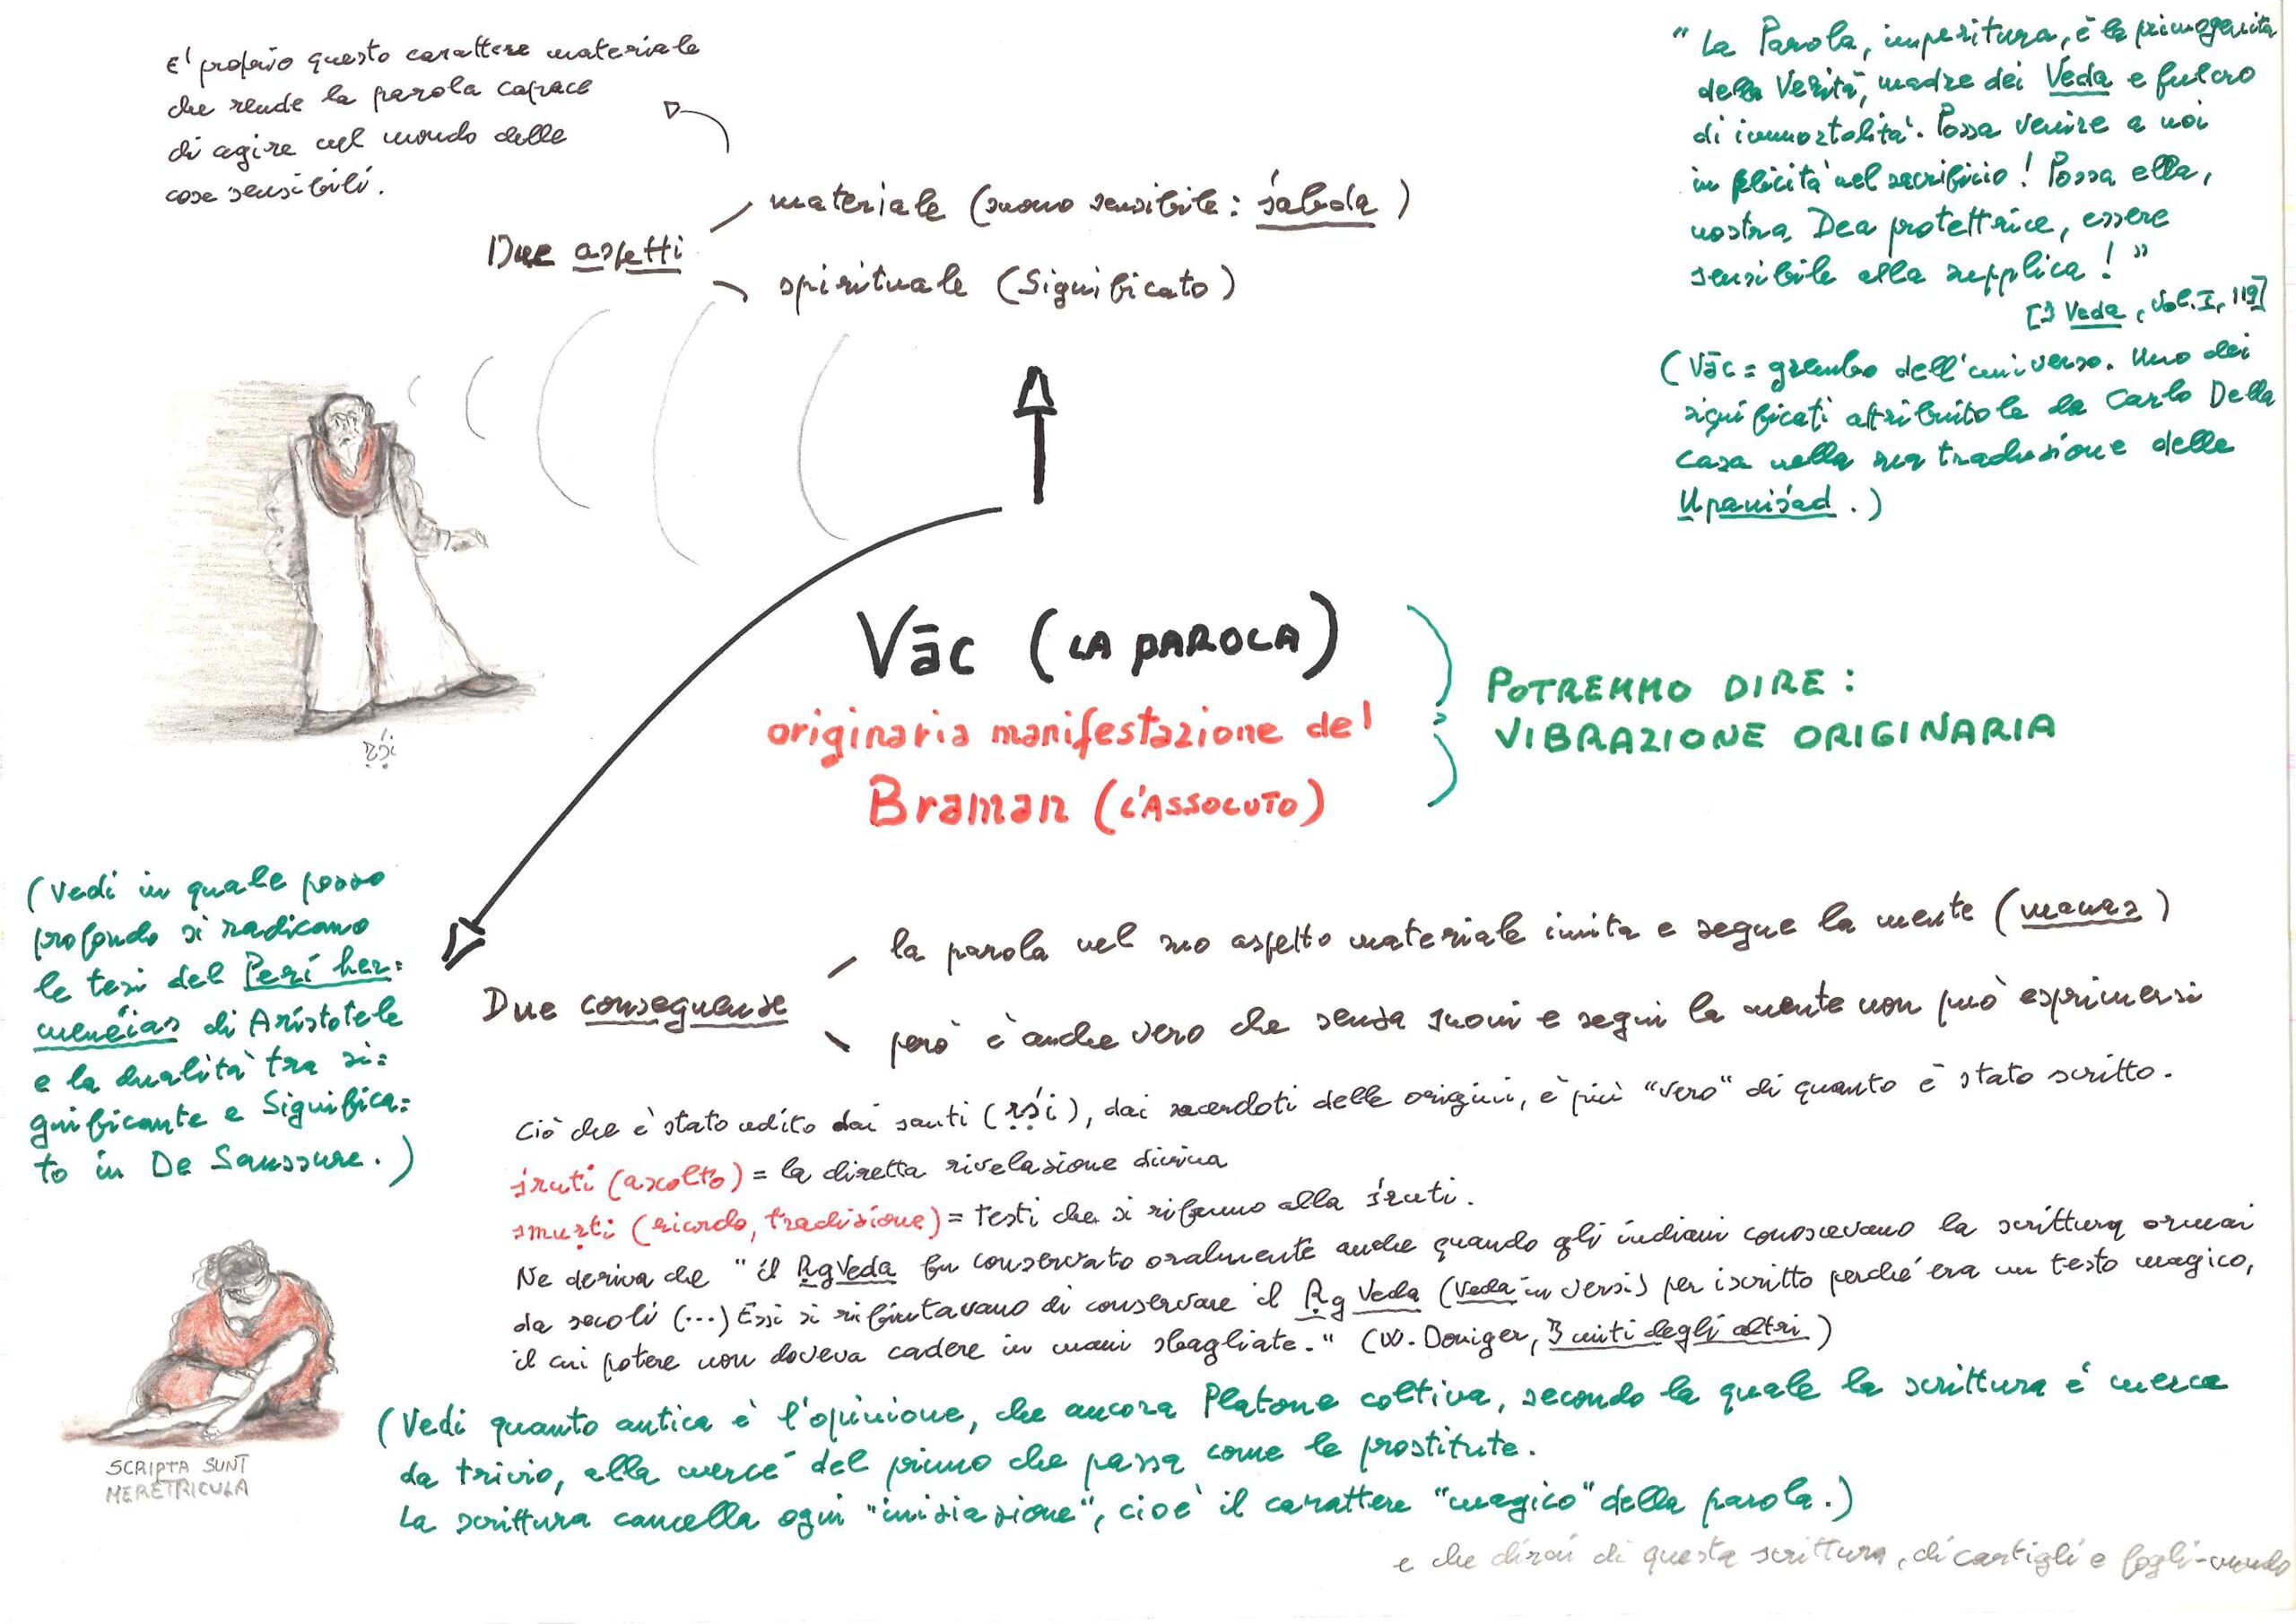 E' proprio questo carattere materiale
che rende la parola capace
di agire nel mondo delle
cose sensibili.
Due aspetti
materiale (suono sensibile: śabda)
spirituale (Significato)
"La Parola, imperitura, è la primogenita
della Verità, madre dei Veda e fulcro
di immortalità. Possa venire a noi
in felicità nel sacrificio! Possa ella,
nostra Dea protettrice, essere
sensibile alla supplica!"
[I Veda, Vol. I, 119]
(Vāc = grembo dell'universo. Uno dei
significati attribuitole da Carlo Della
Casa nella sua traduzione delle
Upaniṣad.)
ṛṣi
Vāc (LA PAROLA)
originaria manifestazione del
Braman (L'ASSOLUTO)
POTREMMO DIRE:
VIBRAZIONE ORIGINARIA
(Vedi in quale pozzo
profondo si radicano
le tesi del Perì her=
menéias di Aristotele
e la dualità tra si=
gnificante e Significa=
to in De Saussure.)
Due conseguenze
la parola nel suo aspetto materiale imita e segue la mente (manas)
però è anche vero che senza suoni e segni la mente non può esprimersi
Ciò che è stato udito dai santi (ṛṣi), dai sacerdoti delle origini, è più "vero" di quanto è stato scritto.
śruti (ascolto) = la diretta rivelazione divina
smṛti (ricordo, tradizione) = testi che si rifanno alla śruti.
Ne deriva che "il Ṛg Veda fu conservato oralmente anche quando gli indiani conoscevano la scrittura ormai
da secoli (...) Essi si rifiutavano di conservare il Ṛg Veda (Veda in versi) per iscritto perché era un testo magico,
il cui potere non doveva cadere in mani sbagliate." (W. Doniger, I miti degli altri)
SCRIPTA SUNT
MERETRICULA
(Vedi quanto antica è l'opinione, che ancora Platone coltiva, secondo la quale la scrittura è merce
da trivio, alla mercé del primo che passa come le prostitute.
La scrittura cancella ogni "iniziazione", cioè il carattere "magico" della parola.)
e che dirai di questa scrittura, di cartigli e fogli-mondo